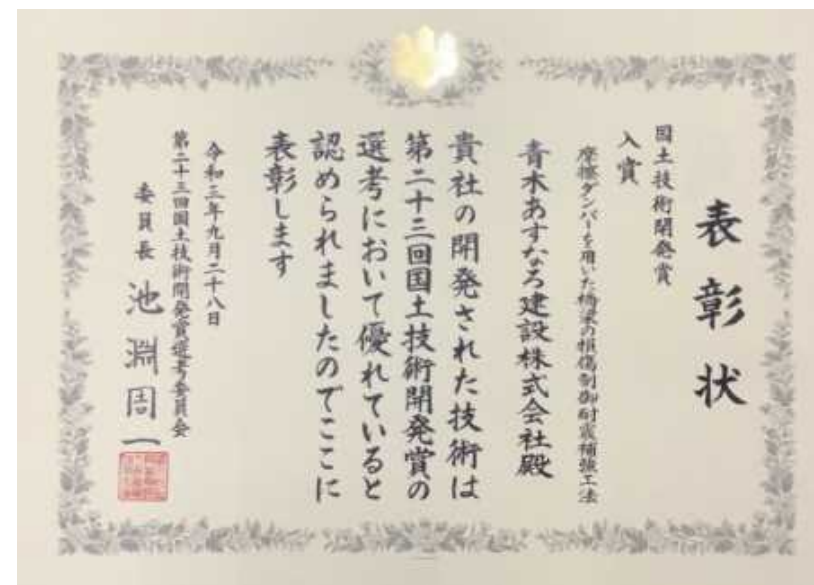 表彰状
国土技術開発賞
入賞
摩擦ダンパーを用いた橋梁の損傷制御耐震補強工法
青木あすなろ建設株式会社殿
貴社の開発された技術は
第二十三回国土技術開発賞の
選考において優れていると
認められましたのでここに
表彰します
令和三年九月二十八日
第二十三回国土技術開発賞選考委員会
委員長 池淵周一